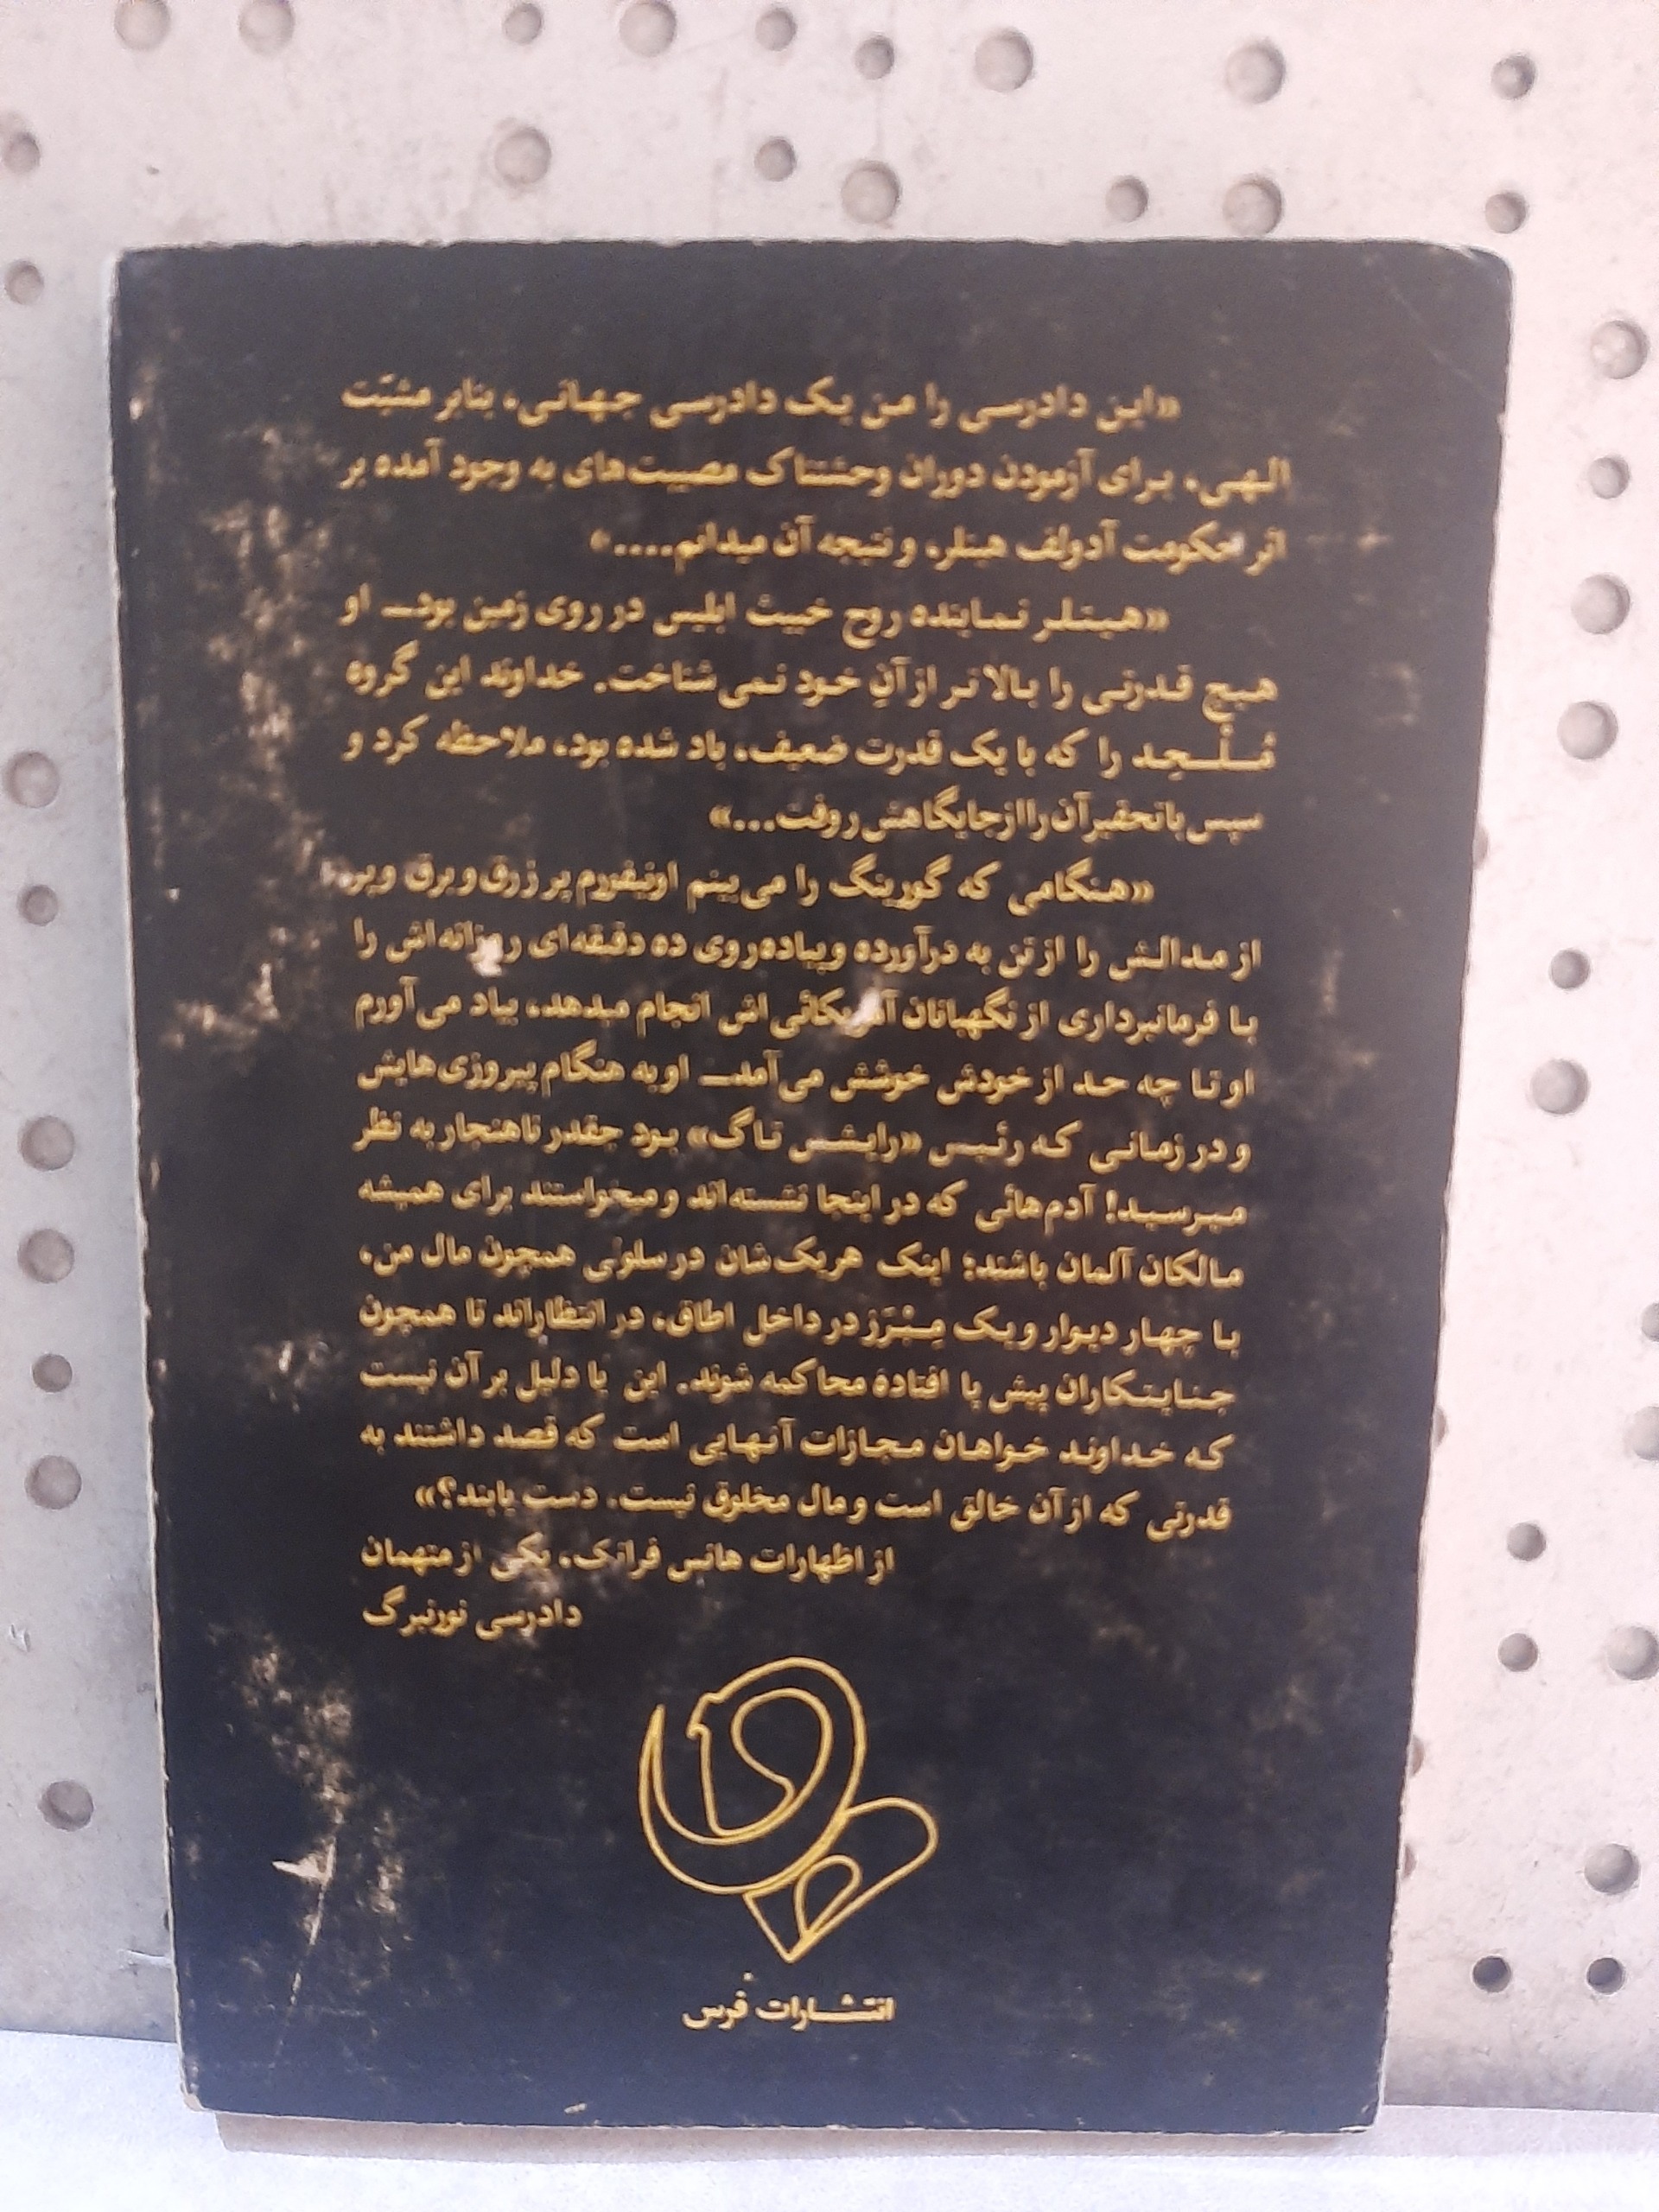 «این دادرسی را من یک دادرسی جهانی، بنابر مشیّت
الهی، برای آزمودن دوران وحشتناک مصیبت‌های به وجود آمده بر
اثر حکومت آدولف هیتلر، و نتیجه آن میدانم....»
«هیتلر نماینده روح خبیث ابلیس در روی زمین بود_ او
هیچ قدرتی را بالاتر از آنِ خود نمی‌شناخت. خداوند این گروه
مُلْحِد را که با یک قدرت ضعیف، یاد شده بود، ملاحظه کرد و
سپس با تحقیر آن را از جایگاهش روفت...»
«هنگامی که گورینگ را می‌بینم اونیفورم پر زرق و برق و پر
از مدالش را از تن به درآورده و پیاده‌روی ده دقیقه‌ای روزانه‌اش را
با فرمانبرداری از نگهبانان آمریکائی‌اش انجام میدهد، بیاد می‌آورم
او تا چه حد از خودش خوشش می‌آمد_ او به هنگام پیروزی‌هایش
و در زمانی که رئیس «رایشس تاگ» بود چقدر ناهنجار به نظر
میرسید! آدم‌هائی که در اینجا نشسته‌اند و میخواستند برای همیشه
مالکان آلمان باشند؛ اینک هریک‌شان در سلولی همچون مال من،
با چهار دیوار و یک مِبْرَز در داخل اطاق، در انتظاراند تا همچون
جنایتکاران پیش پا افتاده محاکمه شوند. این یا دلیل بر آن نیست
که خداوند خواهان مجازات آنهایی است که قصد داشتند به
قدرتی که از آن خالق است و مال مخلوق نیست، دست یابند؟»
از اظهارات هانس فرانک، یکی از متهمان
دادرسی نورنبرگ
انتشارات فرس